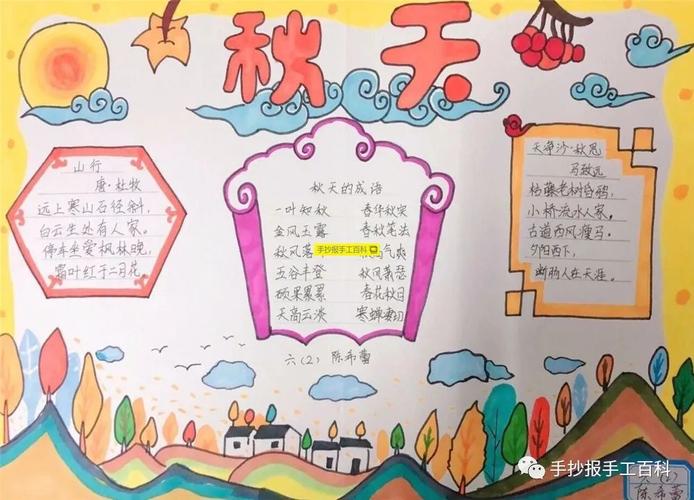 秋天
山行
唐·杜牧
远上寒山石径斜,
白云生处有人家。
停车坐爱枫林晚,
霜叶红于二月花。
秋天的成语
一叶知秋 春华秋实
金风玉露 春秋笔法
秋风落 手抄报手工百科 气爽
五谷丰登 秋风萧瑟
硕果累累 春花秋日
天高云淡 寒蝉凄切
六(2) 陈希蕾
天净沙·秋思
马致远
枯藤老树昏鸦,
小桥流水人家。
古道西风瘦马。
夕阳西下,
断肠人在天涯。
手抄报手工百科
六(2)
陈希蕾